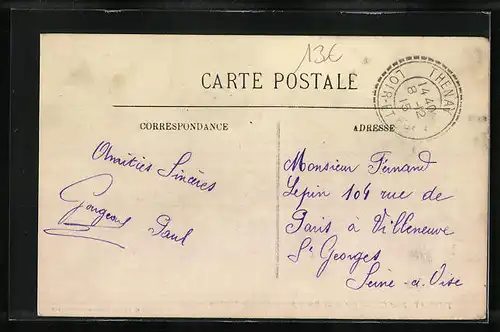 13€
CARTE POSTALE
THENAY
LOIR-ET
14 AO
8-12
CORRESPONDANCE
ADRESSE
Amitiés Sincères
Paul
Monsieur Fernand
Lepin 104 rue de
Paris à Villeneuve
St Georges
Seine-et-Oise